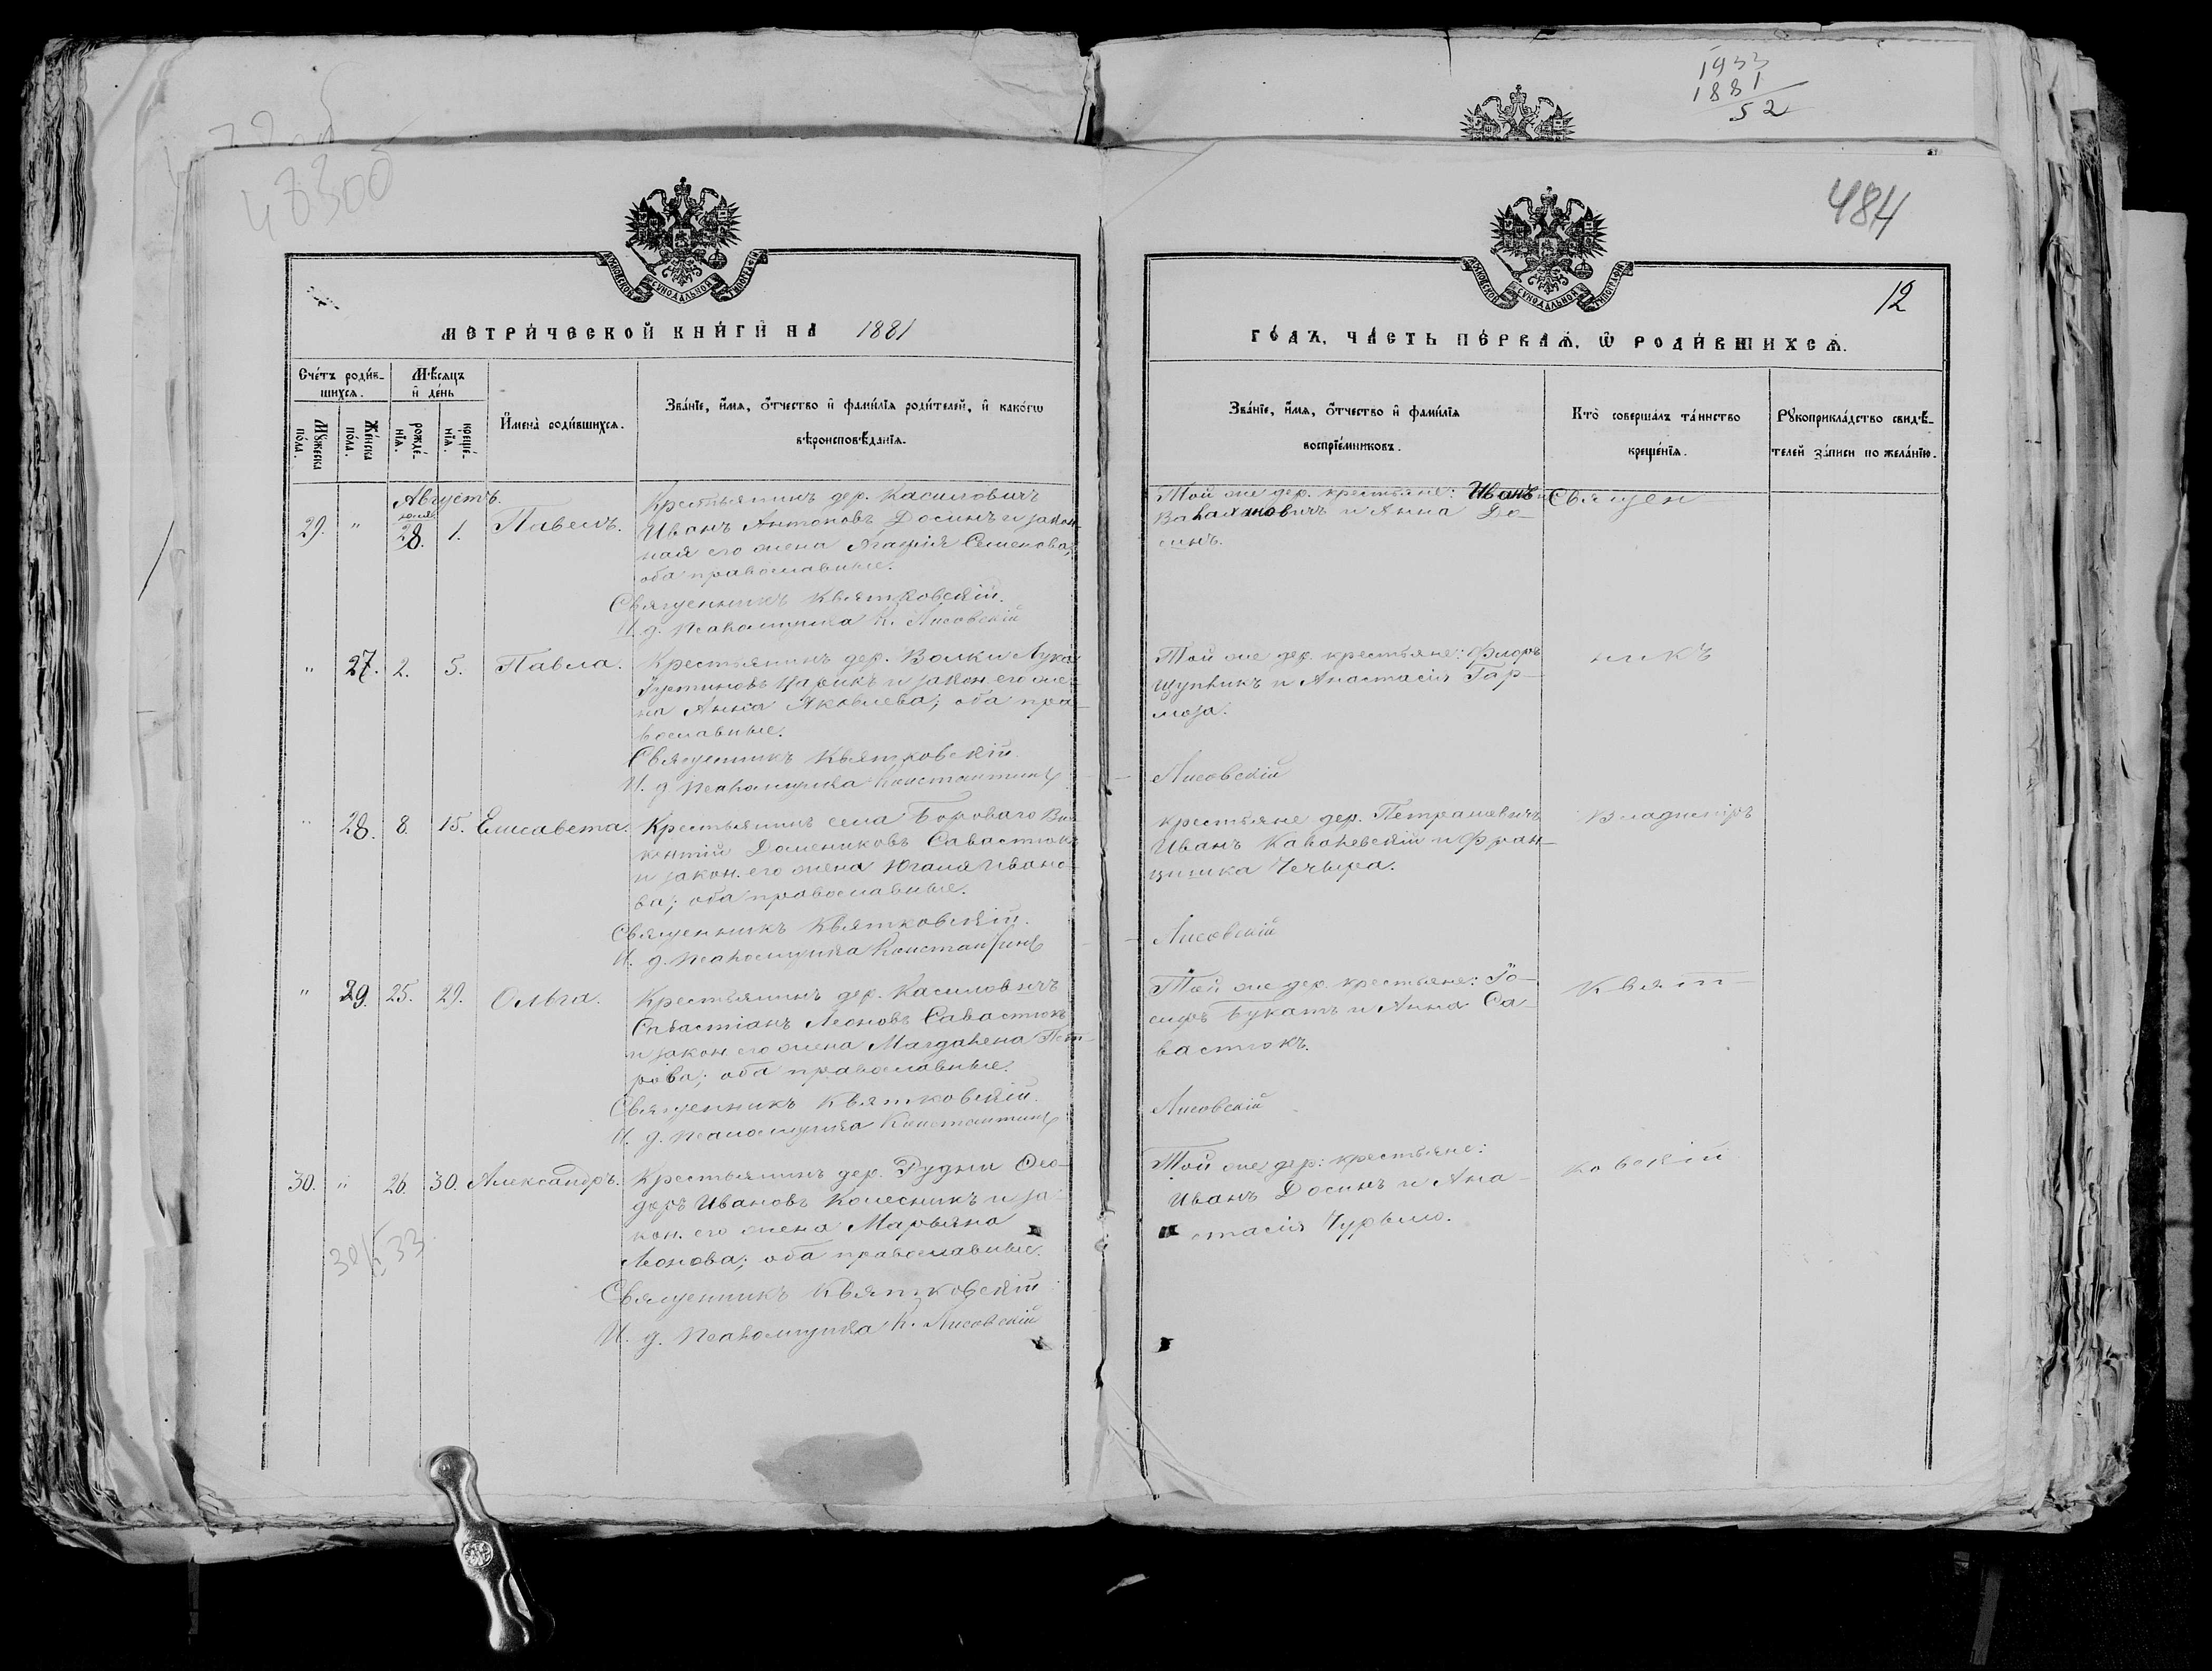 1933
1881
52
483об
484
12
МОСКОВСКОЙ СѴНОДАЛЬНОЙ ТИПОГРАФІИ
МОСКОВСКОЙ СѴНОДАЛЬНОЙ ТИПОГРАФІИ
МЕТРИ́ЧЕСКОЙ КНИ́ГИ НА 1881
ГО́ДЪ, ЧА́СТЬ ПЕ́РВАѦ, Ѿ РОДИ́ВШИХСѦ.
Сче́тъ роди́в-
шихсѧ.
Мѣ́сѧцъ
и҆ де́нь
Мꙋ́жеска по́ла.
Же́нска по́ла.
рожде́-
нїѧ.
креще́-
нїѧ.
И҆мена̀ роди́вшихсѧ.
Зва́нїе, и҆́мѧ, ѻ҆́тчество и҆ фами́лїѧ роди́телей, и҆ како́гѡ
вѣроисповѣ́данїѧ.
Зва́нїе, и҆́мѧ, ѻ҆́тчество и҆ фами́лїѧ
воспрїе́мниковъ.
Кто̀ соверша́лъ та́инство
креще́нїѧ.
Рꙋкоприкла́дство свидѣ́-
телей за́писи по жела́нїю.
Августъ.
29. " юля 28. 1. Павелъ.
Крестьянинъ дер. Касиловичъ
Иванъ Антоновъ Досинъ и закон
ная его жена Агафія Семенова;
оба православные.
Священникъ Квятковскій.
И. д. псаломщика К. Лисовскій
Той же дер. крестьяне: Иванъ
и Анна До-
синъ.
Священ
" 27. 2. 5. Павла.
Крестьянинъ дер. Волки Лука
Іустиновъ Царикъ и закон. его же-
на Анна Яковлева; оба пра-
вославные.
Священникъ Квятковскій
И. д. псаломщика Константинъ
Той же дер. крестьяне: Флоръ
Щупликъ и Анастасія Гар-
моза.
Лисовскій
никъ
" 28. 8. 15. Елисавета.
Крестьянинъ села Бороваго Ви-
кентій Домениковъ Савастюкъ
и закон. его жена Юлія Ивано-
ва; оба православные.
Священникъ Квятковскій.
И. д. псаломщика Константинъ
крестьяне дер. Петрашевичъ
Иванъ Ковалевскій и Фран-
цишка Чечыра.
Лисовскій
Владиміръ
" 29. 25. 29. Ольга.
Крестьянинъ дер. Касиловичъ
Сабастіанъ Леоновъ Савастюкъ
и закон. его жена Магдалена Пет-
рова; оба православные.
Священникъ Квятковскій.
И. д. псаломщика Константинъ
Той же дер. крестьяне: Іо-
сифъ Букатъ и Анна Са-
вастюкъ.
Лисовскій
Квят
30. " 26. 30. Александръ.
Крестьянинъ дер. Рудни Ѳео-
доръ Ивановъ Колесникъ и за-
кон. его жена Марьяна
Леонова; оба православные.
Священникъ Квятковскій
И. д. псаломщика К. Лисовскій
Той же дер: крестьяне:
Иванъ Досинъ и Ана-
стасія Чурыло.
ковскій